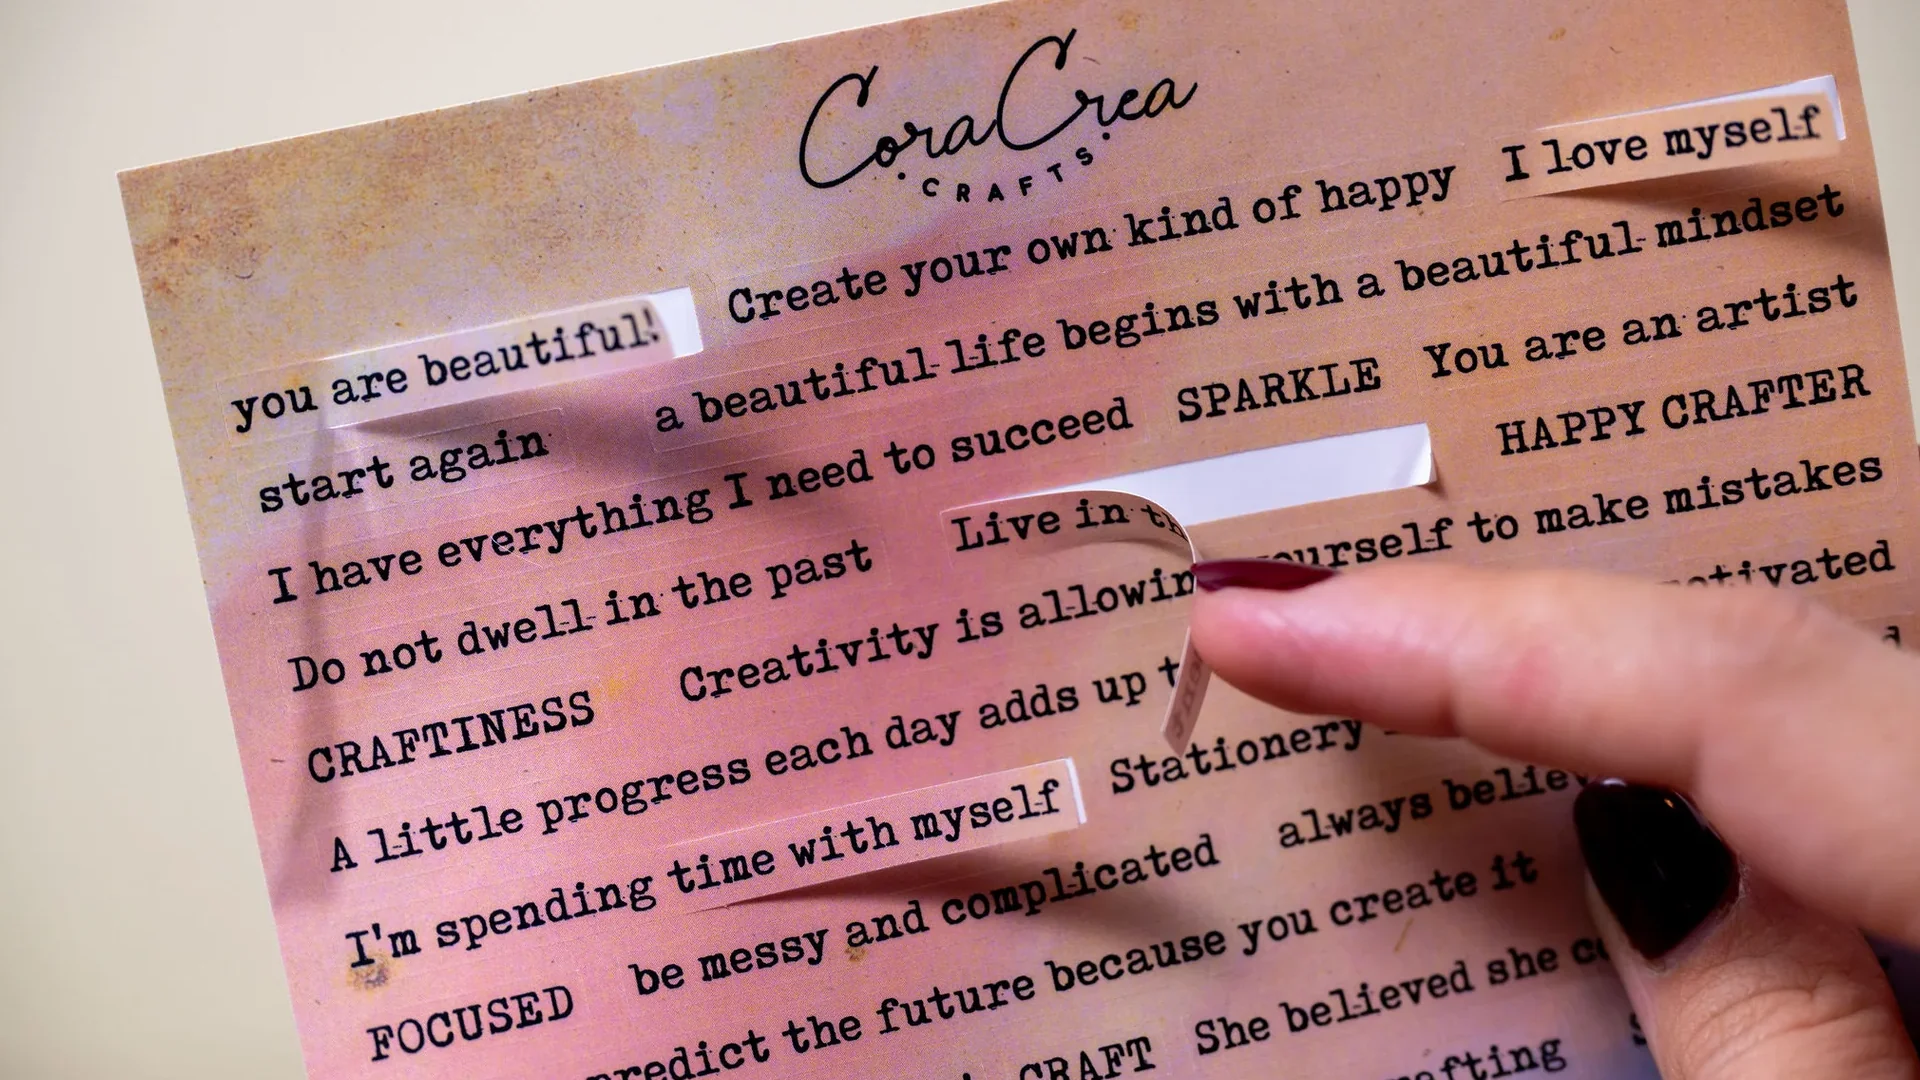 CoraCrea
CRAFTS
you are beautiful! Create your own kind of happy I love myself
start again a beautiful life begins with a beautiful mindset
I have everything I need to succeed SPARKLE You are an artist
Do not dwell in the past Live in HAPPY CRAFTER
CRAFTINESS Creativity is yourself to make mistakes
A little progress each day adds up
I'm spending time with myself Stationery
FOCUSED be messy and complicated always
predict the future because you create it
CRAFT She believed she